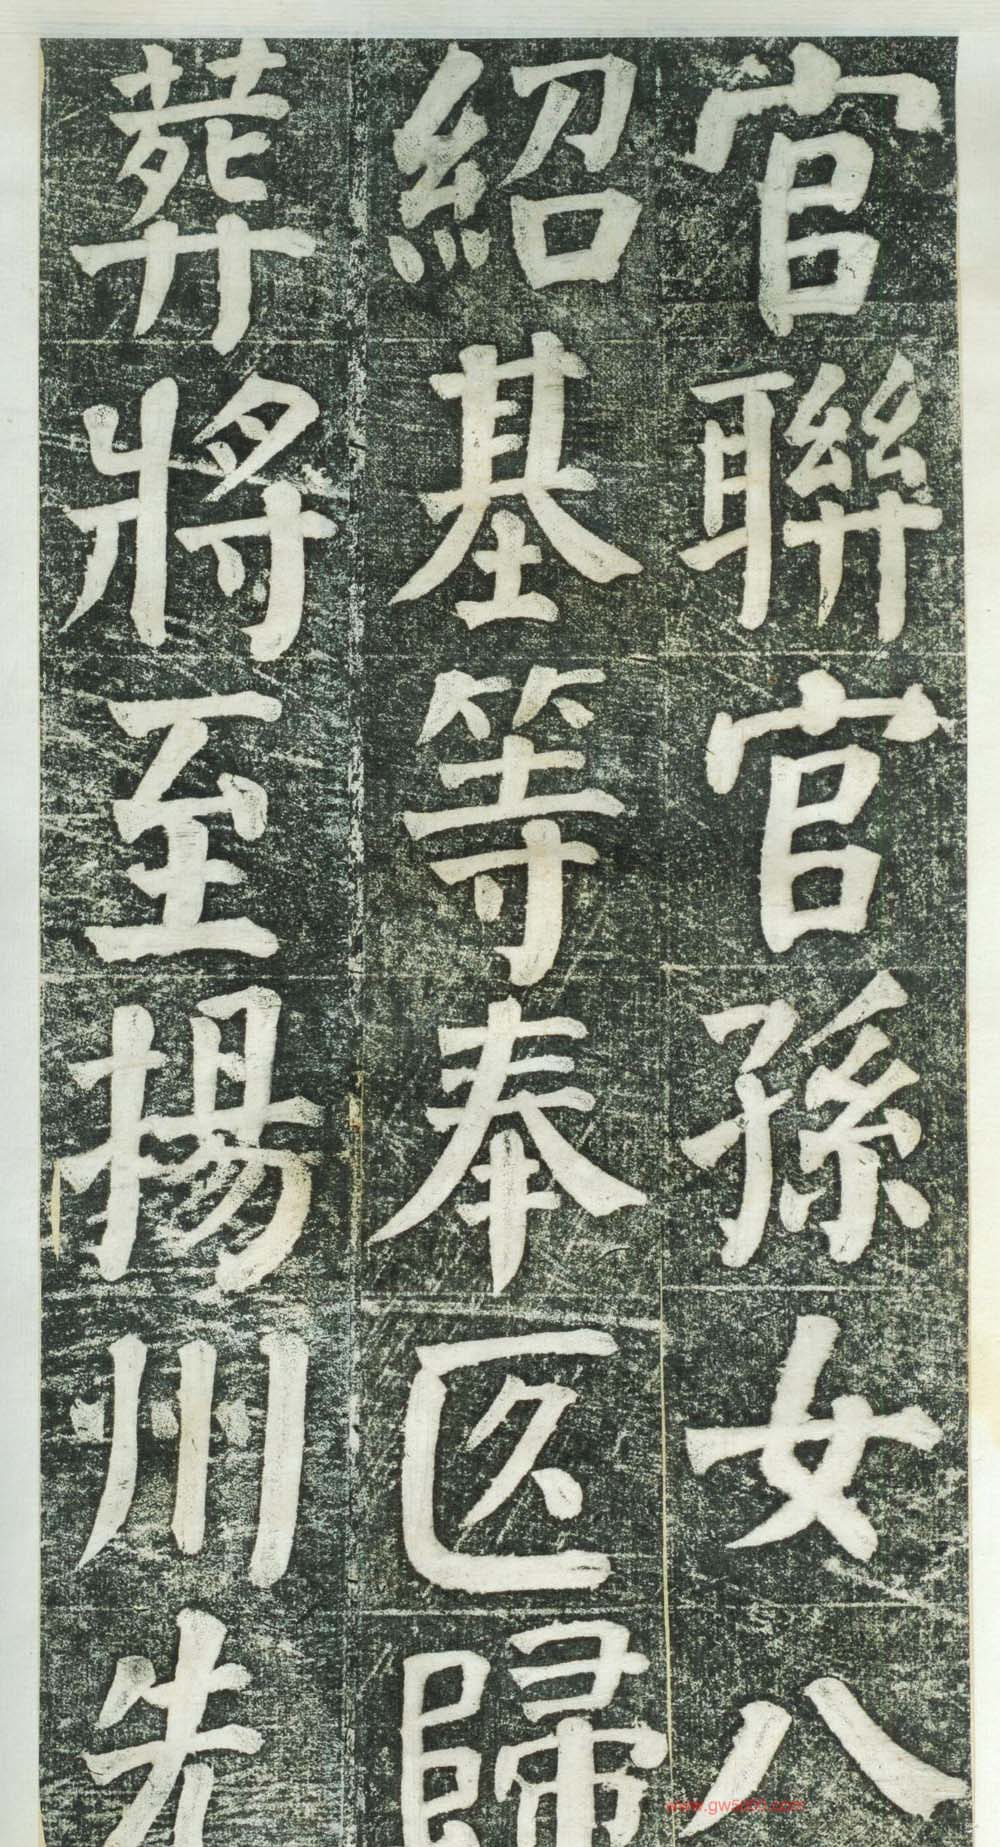 官聯官孫女八
紹基等奉匛歸
葬將至揚州先
www.gw5000.com